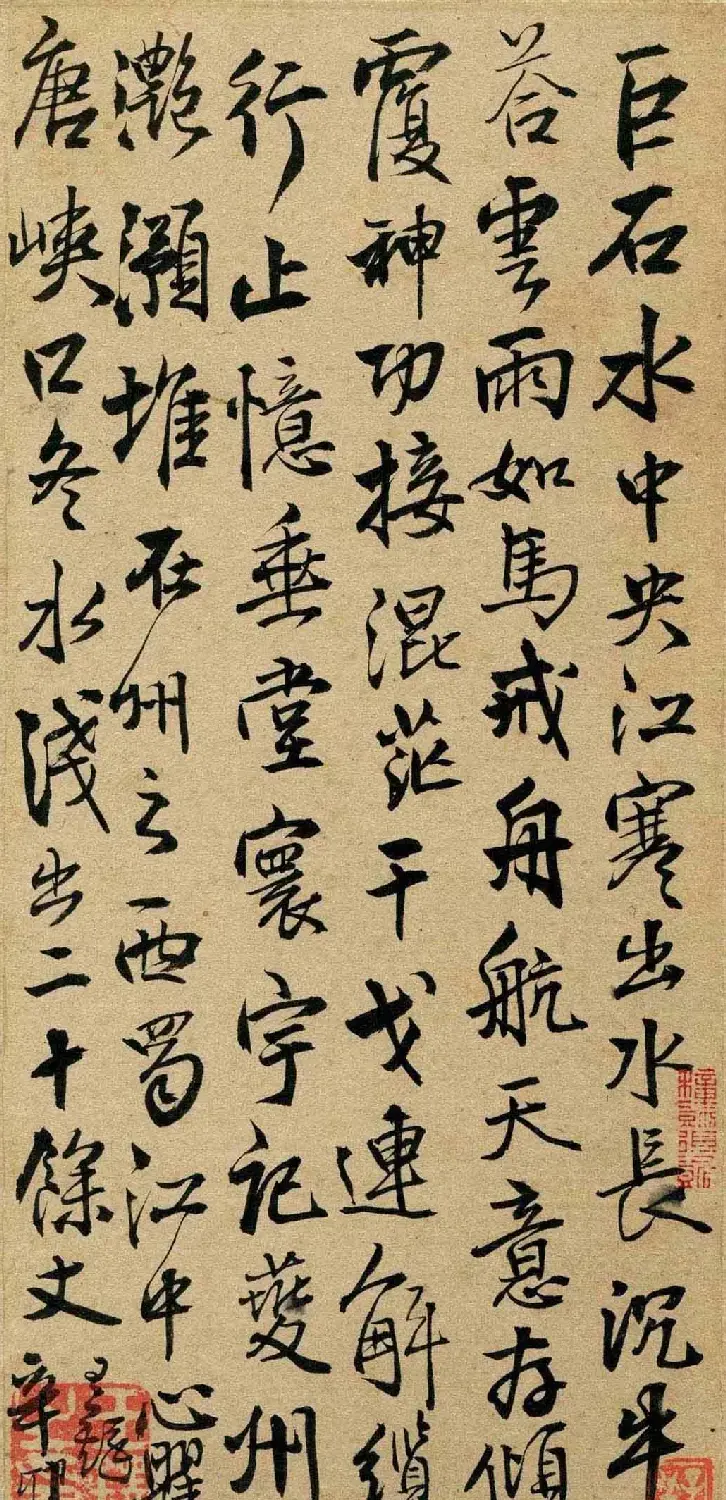 巨石水中央江寒出水長沉牛
荅雲雨如馬戒舟航天意存傾
覆神功接混茫干戈連解纜
行止憶垂堂寰宇記夔州
灔澦堆在州之西蜀江中心瞿
唐峽口冬水淺出二十餘丈辛卯
王鐸